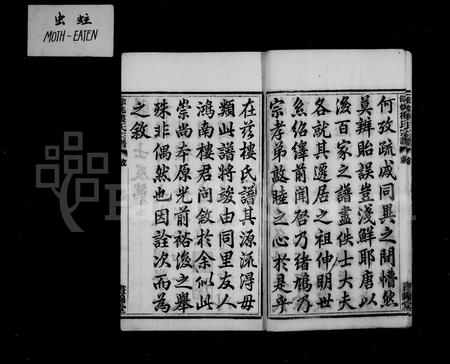 虫蛀
MOTH-EATEN
何攷疏戚同異之間懵然
莫辨貽誤豈淺鮮耶唐以
後百家之譜盡佚士大夫
各就其遷居之祖伸明世
系紹繹前聞啓乃緒禰乃
宗孝弟敦睦之心於是乎
在茲樓氏譜其源流得毋
類此譜將竣由同里友人
鴻南樓君問敘於余似此
崇尚本原光前裕後之舉
殊非偶然也因詮次而為
之敘